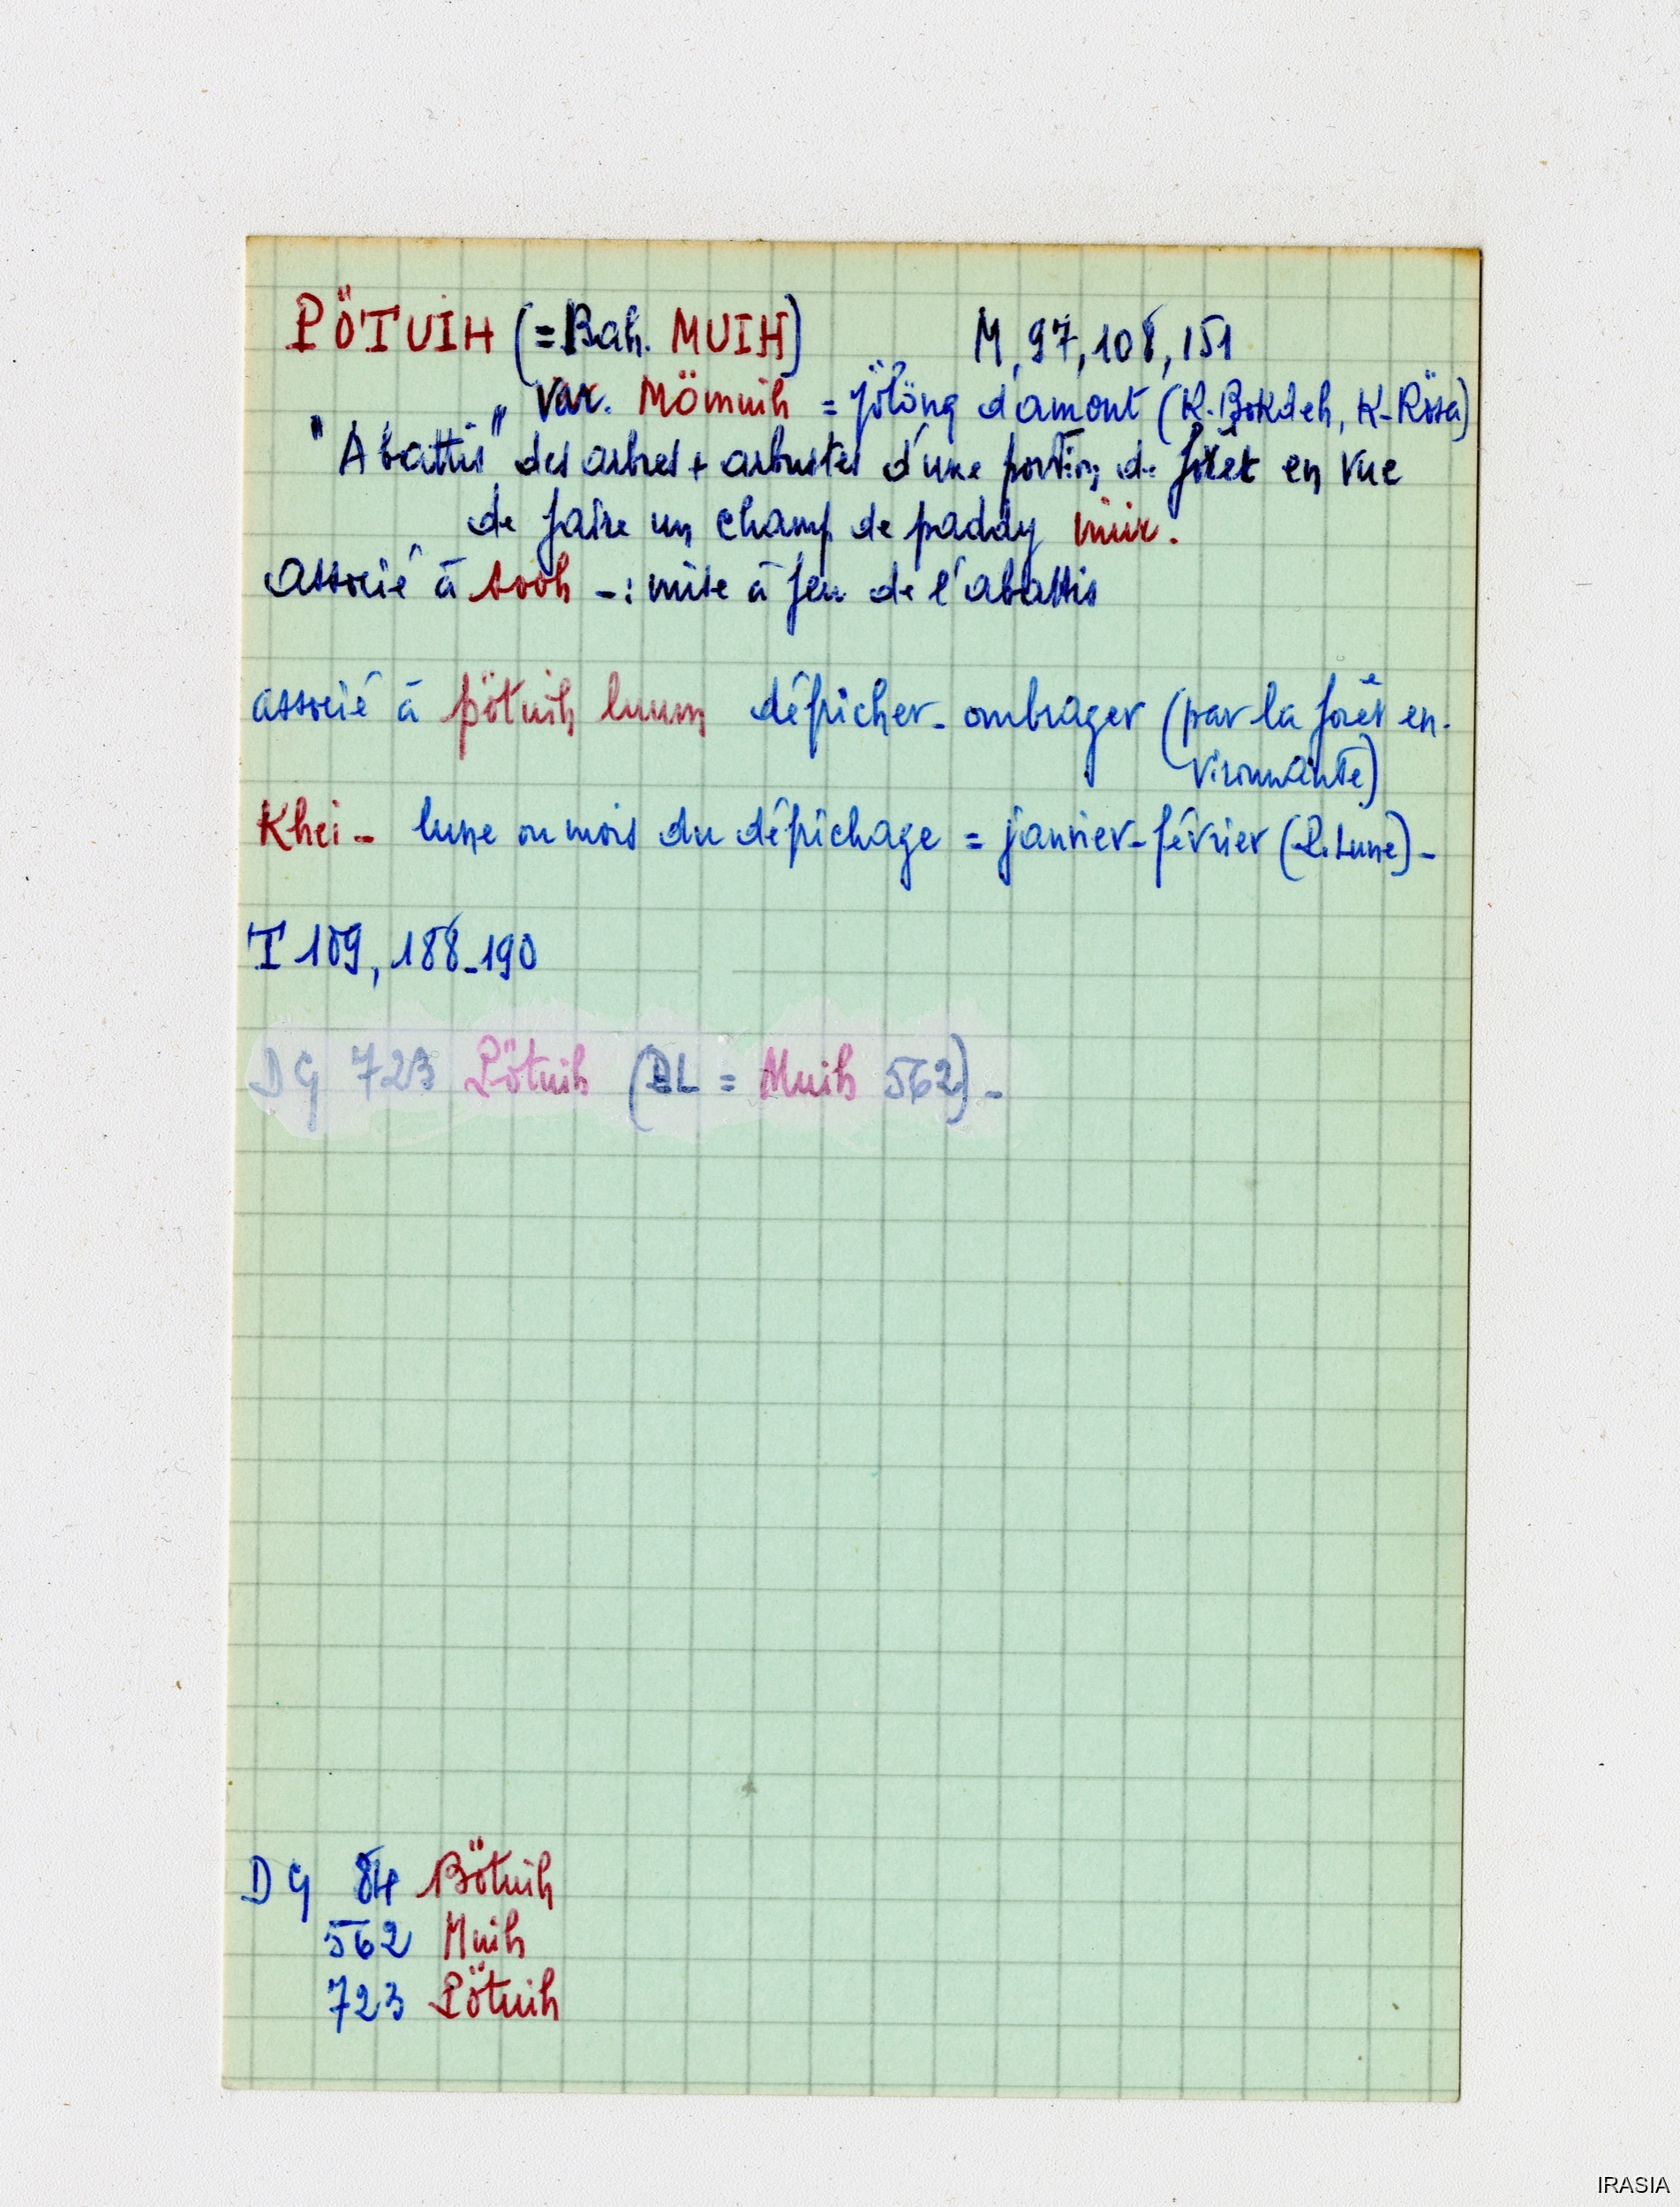 PÖTUIH (= Bah. MUIH) M, 97, 108, 151
Var. Mömuih = jölöng d'amont (K. Bokdeh, K-Rösa)
"Abattis" des arbres + arbustes d'une portion de forêt en vue
de faire un champ de paddy mir.
Associé à sooh - : mise à feu de l'abattis
associé à pötuih luum défricher - ombrager (par la forêt en-
vironnante)
Khei - lune ou mois du défrichage = janvier - février (2. Lune) -
T 109, 188-190
DG 723 Pötuih (BL = Muih 562) -
DG 84 Bötuih
562 Muih
723 Pötuih
IRASIA